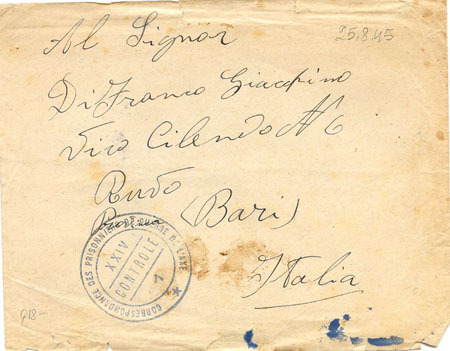 25.8.45
Al Signor
Di Franco Giacchino
Vico Cilendo N 6
(Bari)
Italia
CORRESPONDANCE DES PRISONNIERS DE GUERRE DE L'AXE
XXIV
CONTROLE
1